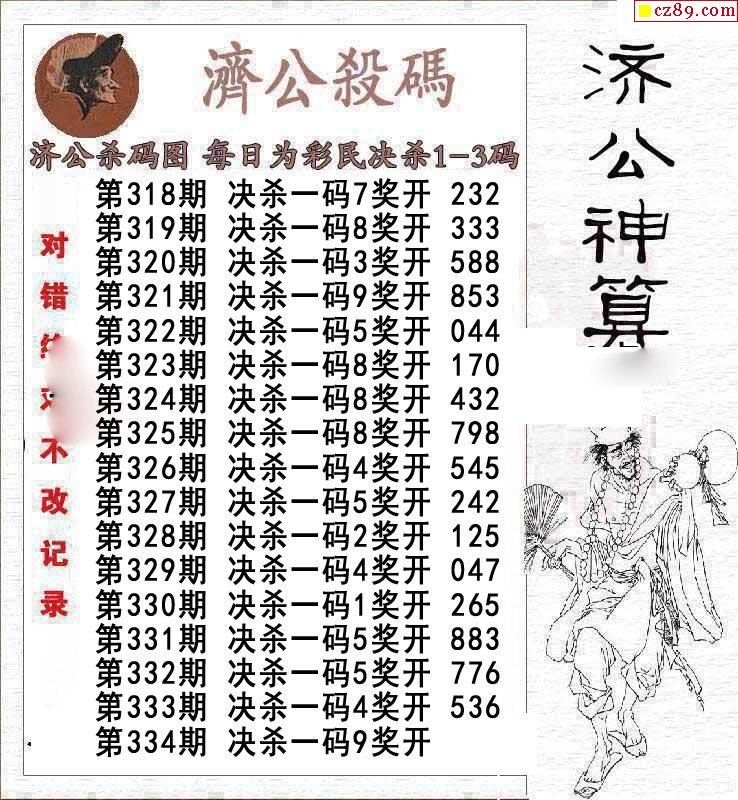 cz89.com
濟公殺碼
济公杀码图 每日为彩民决杀1-3码
第318期 决杀一码7奖开 232
第319期 决杀一码8奖开 333
第320期 决杀一码3奖开 588
第321期 决杀一码9奖开 853
第322期 决杀一码5奖开 044
第323期 决杀一码8奖开 170
第324期 决杀一码8奖开 432
第325期 决杀一码8奖开 798
第326期 决杀一码4奖开 545
第327期 决杀一码5奖开 242
第328期 决杀一码2奖开 125
第329期 决杀一码4奖开 047
第330期 决杀一码1奖开 265
第331期 决杀一码5奖开 883
第332期 决杀一码5奖开 776
第333期 决杀一码4奖开 536
第334期 决杀一码9奖开
对错不改记录
济公神算